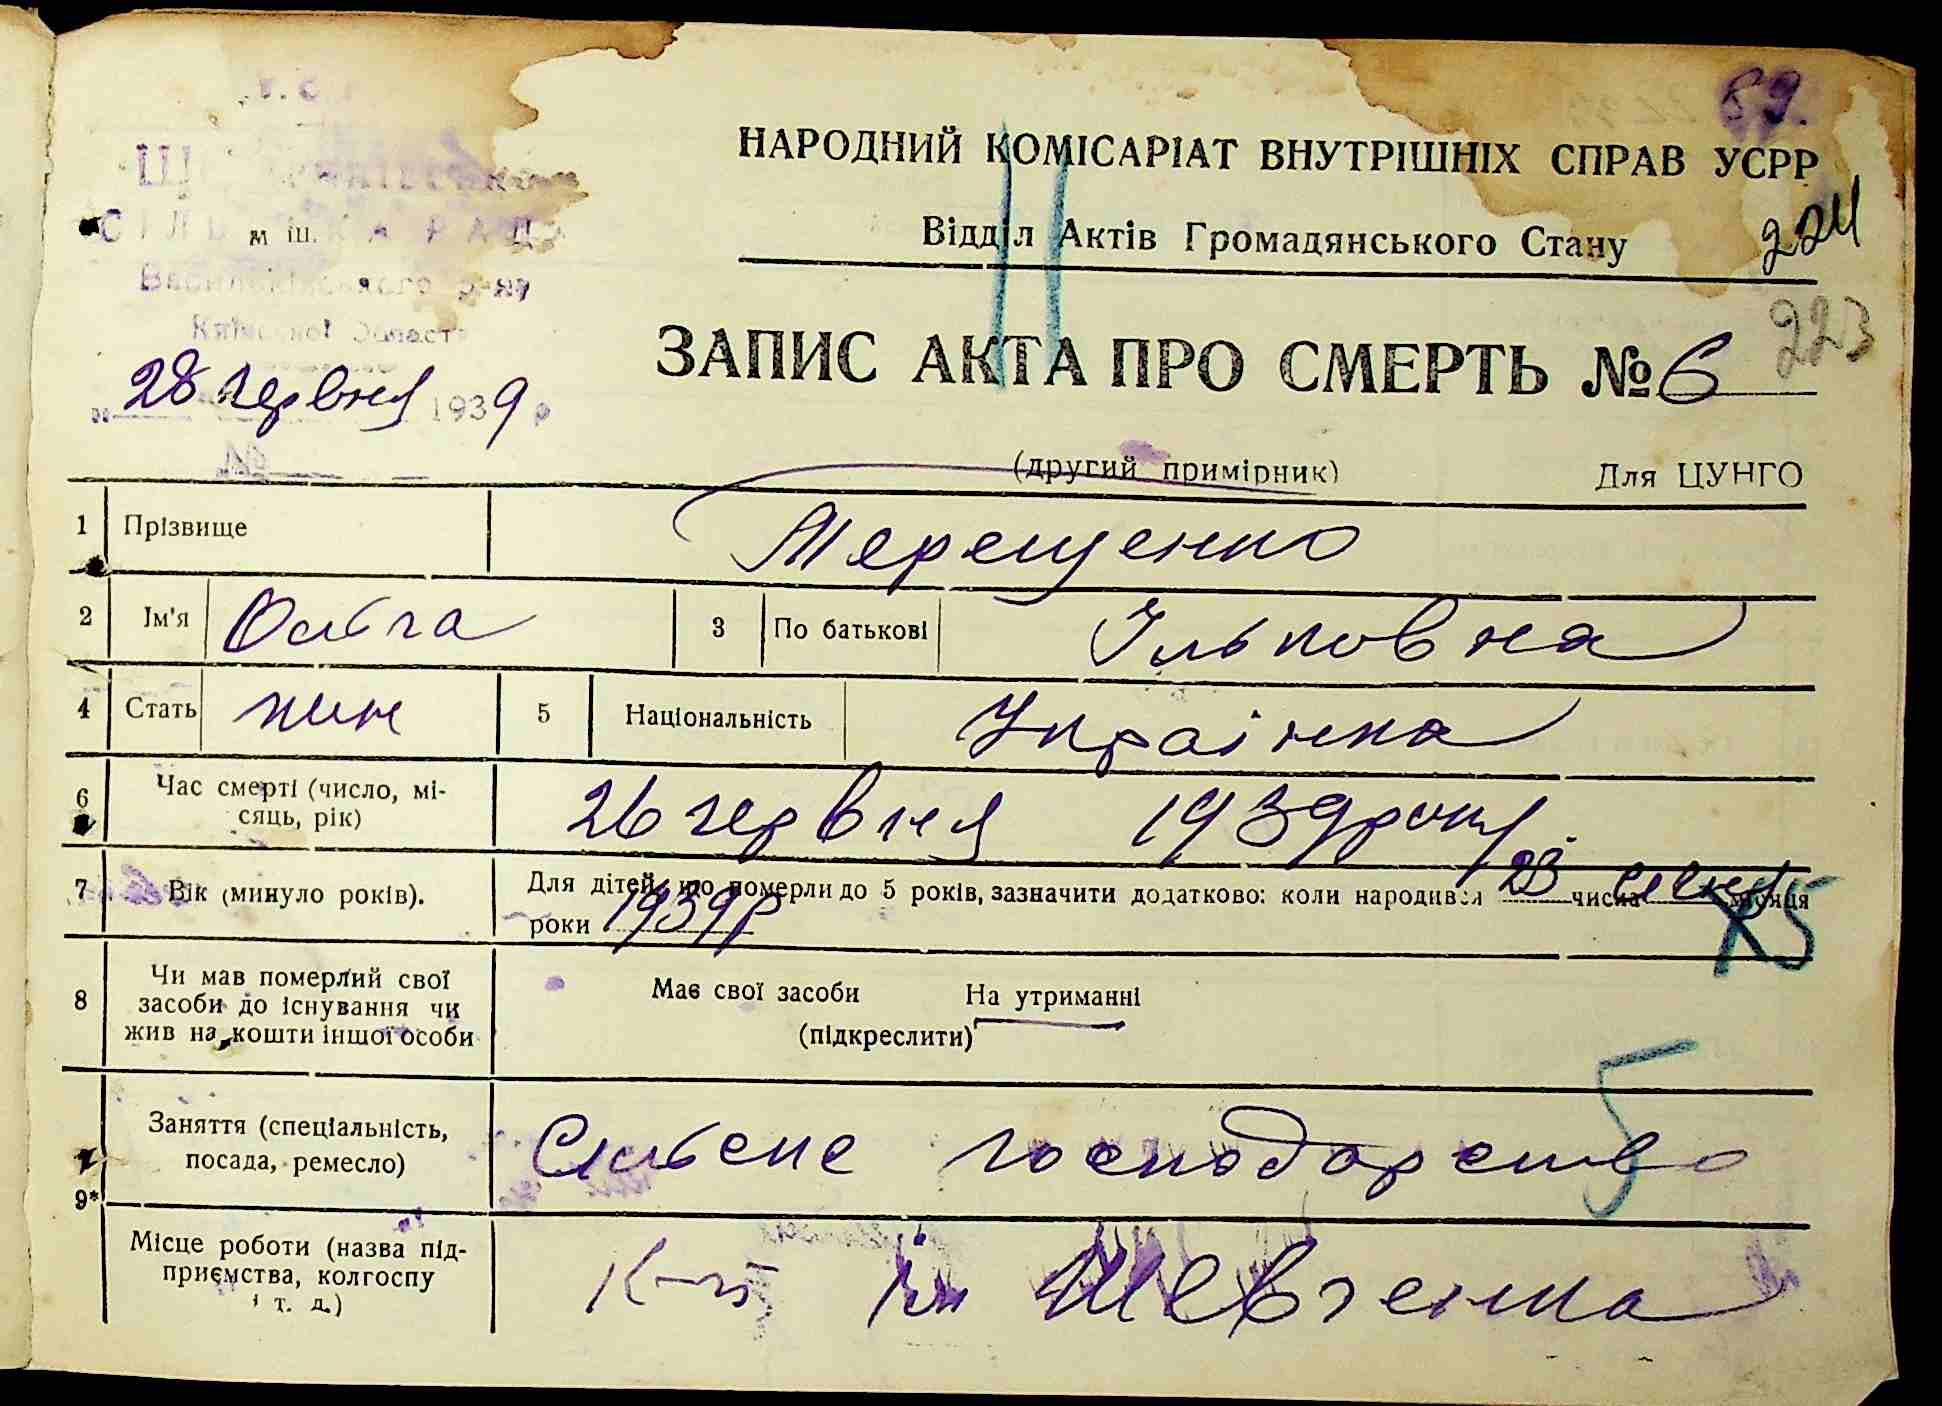 89.
НАРОДНИЙ КОМІСАРІАТ ВНУТРІШНІХ СПРАВ УСРР
Відділ Актів Громадянського Стану
224
СІЛЬСЬКА РАДА
м ш.
Васильківського р-ну
Київської Області
223
ЗАПИС АКТА ПРО СМЕРТЬ № 6
28 червня 1939 р
(другий примірник) Для ЦУНГО
1 Прізвище Терещенко
2 Ім'я Ольга 3 По батькові Ільковна
4 Стать жин 5 Національність Українка
6 Час смерті (число, мі-
сяць, рік) 26 червня 1939 року.
7 Вік (минуло років). Для дітей, що померли до 5 років, зазначити додатково: коли народився 23 числа січня місяця
роки 1939 р
8 Чи мав померлий свої
засоби до існування чи
жив на кошти іншої особи
Має свої засоби На утриманні
(підкреслити)
5
Заняття (спеціальність,
посада, ремесло) Сільське господарство
9*
Місце роботи (назва під-
приємства, колгоспу
і т. д.)
К-п ім Шевченка